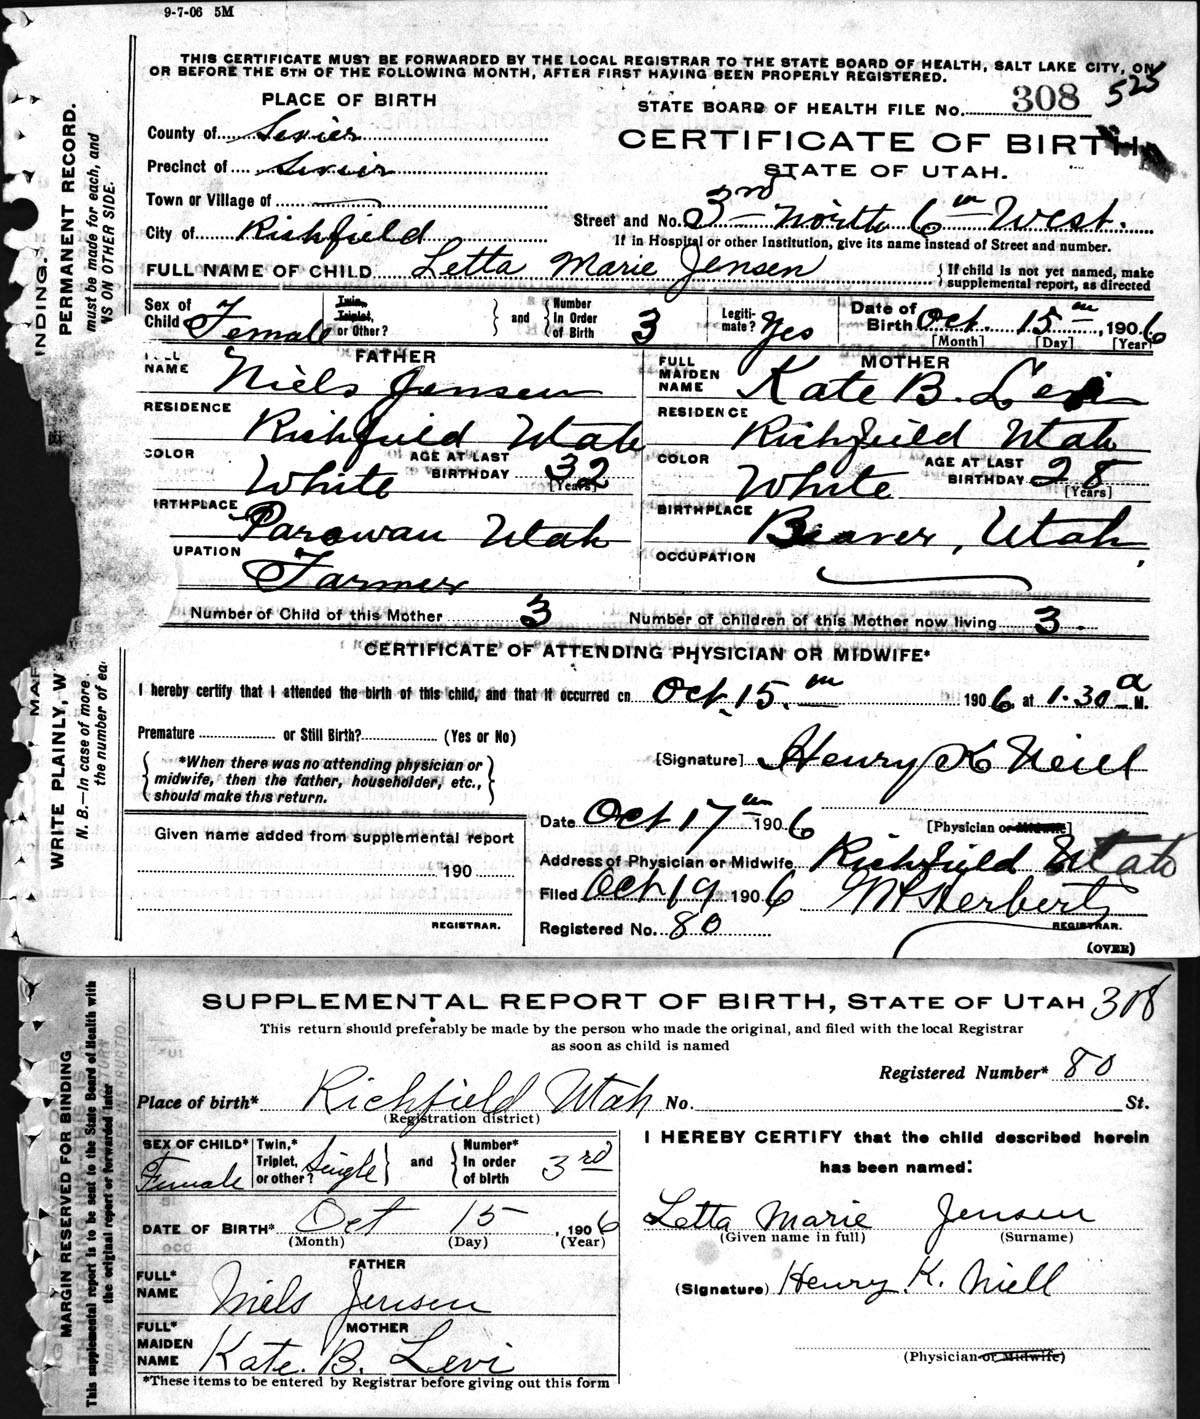 9-7-06 5M
THIS CERTIFICATE MUST BE FORWARDED BY THE LOCAL REGISTRAR TO THE STATE BOARD OF HEALTH, SALT LAKE CITY, ON
OR BEFORE THE 5TH OF THE FOLLOWING MONTH, AFTER FIRST HAVING BEEN PROPERLY REGISTERED.
525
PLACE OF BIRTH
STATE BOARD OF HEALTH FILE No. 308
County of Sevier
CERTIFICATE OF BIRTH
Precinct of Sevier
STATE OF UTAH.
Town or Village of
Street and No. 3rd North 6th West.
City of Richfield
If in Hospital or other Institution, give its name instead of Street and number.
FULL NAME OF CHILD Letta Marie Jensen
If child is not yet named, make
supplemental report, as directed
Sex of Child Female
Twin, Triplet, or Other?
and
Number In Order of Birth 3
Legitimate? Yes
Date of Birth Oct. 15th, 1906
[Month] [Day] [Year]
FATHER
MOTHER
NAME Niels Jensen
FULL MAIDEN NAME Kate B. Levi
RESIDENCE Richfield Utah
RESIDENCE Richfield Utah
COLOR White
AGE AT LAST BIRTHDAY 32 [Years]
COLOR White
AGE AT LAST BIRTHDAY 28 [Years]
IRTHPLACE Parowan Utah
BIRTHPLACE Beaver, Utah,
UPATION Farmer
OCCUPATION
Number of Child of this Mother 3
Number of children of this Mother now living 3.
CERTIFICATE OF ATTENDING PHYSICIAN OR MIDWIFE*
I hereby certify that I attended the birth of this child, and that it occurred on Oct. 15.th 1906, at 1.30 a M.
Premature or Still Birth? (Yes or No)
*When there was no attending physician or
midwife, then the father, householder, etc.,
should make this return.
[Signature] Henry K Neill
Date Oct 17th 1906
[Physician or Midwife]
Given name added from supplemental report
190
REGISTRAR.
Address of Physician or Midwife Richfield Utah
Filed Oct 19 1906
Herbert
REGISTRAR.
Registered No. 80
(OVER)
INDING.
PERMANENT RECORD.
must be made for each, and
NS ON OTHER SIDE.
MAR
WRITE PLAINLY, W
N. B.—In case of more
the number of ea
SUPPLEMENTAL REPORT OF BIRTH, STATE OF UTAH 308
This return should preferably be made by the person who made the original, and filed with the local Registrar
as soon as child is named
Registered Number* 80
Place of birth* Richfield Utah No. St.
(Registration district)
SEX OF CHILD* Female
Twin,* Triplet, or other? Single
and
Number* In order of birth 3rd
I HEREBY CERTIFY that the child described herein
has been named:
DATE OF BIRTH* Oct 15, 1906
(Month) (Day) (Year)
Letta Marie Jensen
(Given name in full) (Surname)
FATHER
FULL* NAME Niels Jensen
(Signature) Henry K. Niell
MOTHER
FULL* MAIDEN NAME Kate. B. Levi
(Physician or Midwife)
*These items to be entered by Registrar before giving out this form
MARGIN RESERVED FOR BINDING
This supplemental report is to be sent to the State Board of Health with
the original report or forwarded later